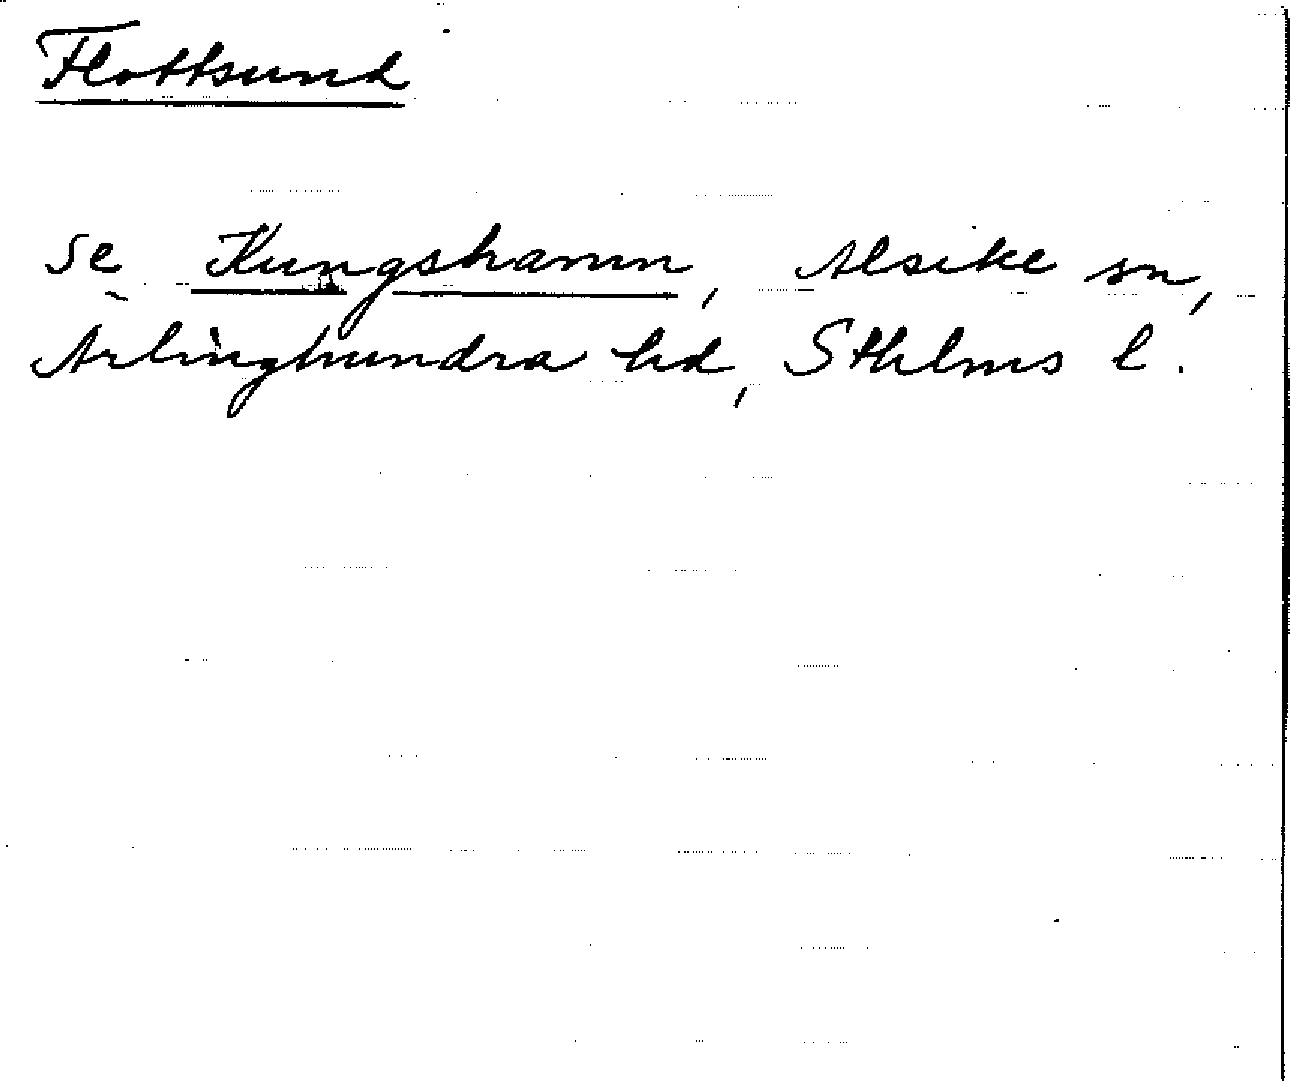 Flottsund
se Kungshamn, Alsike sn,
Ärlinghundra hd, Sthlms l.